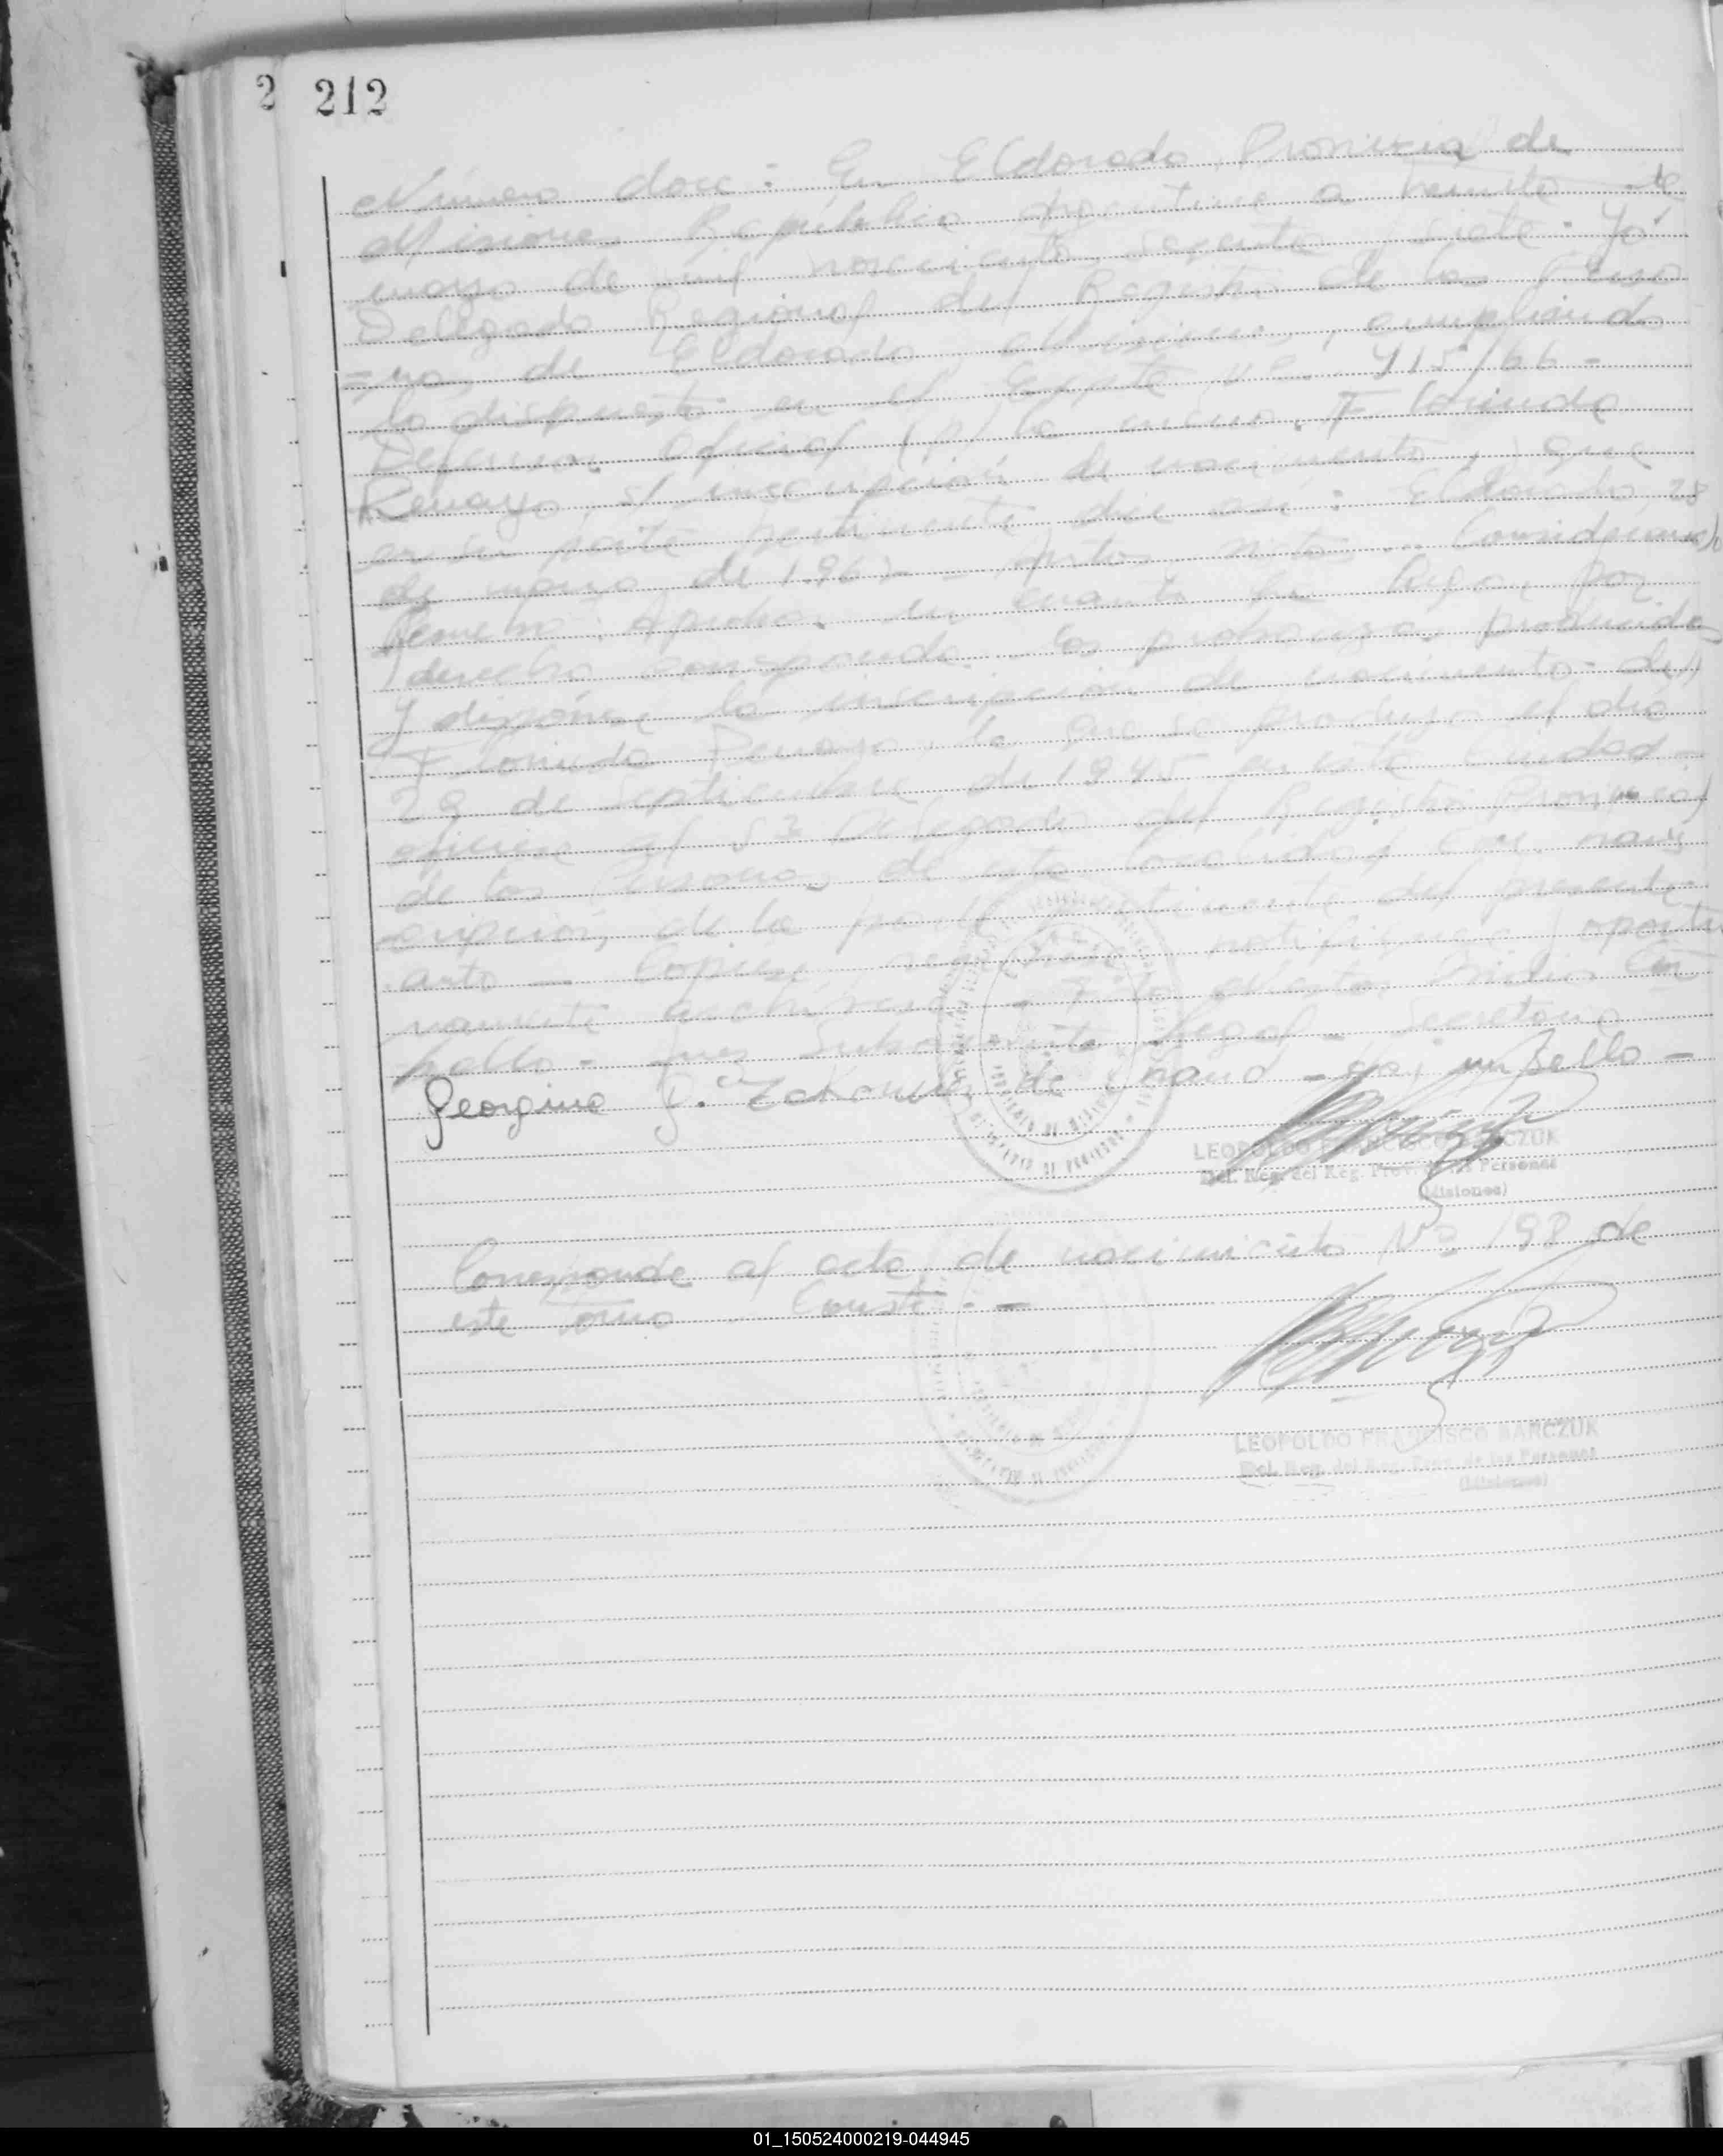 2 212
Número doce: En Eldorado, Provincia de
Misiones República Argentina a treinta de
mayo de mil novecientos sesenta y siete: Yó
Delegado Regional del Registro de las Perso
=nas de Eldorado Misiones, cumpliendo
lo dispuesto en el Expte nº 415/66-
Defensor Oficial (p/ la menor Florinda
s/ inscripción de nacimiento, que
en su parte pertinente dice así: Eldorado, 28
de marzo de 1967- - Autos vistos... Considerando
Resuelvo: Aprobar en cuanto ha lugar por
derecho corresponda las probanzas producidas
y dispónese la inscripción de nacimiento de
Florinda lo que se produjo el día
29 de Septiembre de 1945 en esta Ciudad-
ofíciese al Sr Delegado del Registro Provincial
de las Personas de esta localidad con trans
cripción, de la parte pertinente del presente
auto — Copiese, notifíquese y oportu
namente archívese
Juez Subrogante Legal - Secretaria
Georgina G. de - Hay un sello —
LEOPOLDO FRANCISCO BARCZUK
Del. Reg. del Reg. Prov. de las Personas
(Misiones)
Corresponde al acta de nacimiento Nº 198 de
este tomo Conste. -
LEOPOLDO FRANCISCO BARCZUK
Del. Reg. del Reg. Prov. de las Personas
(Misiones)
01_150524000219-044945